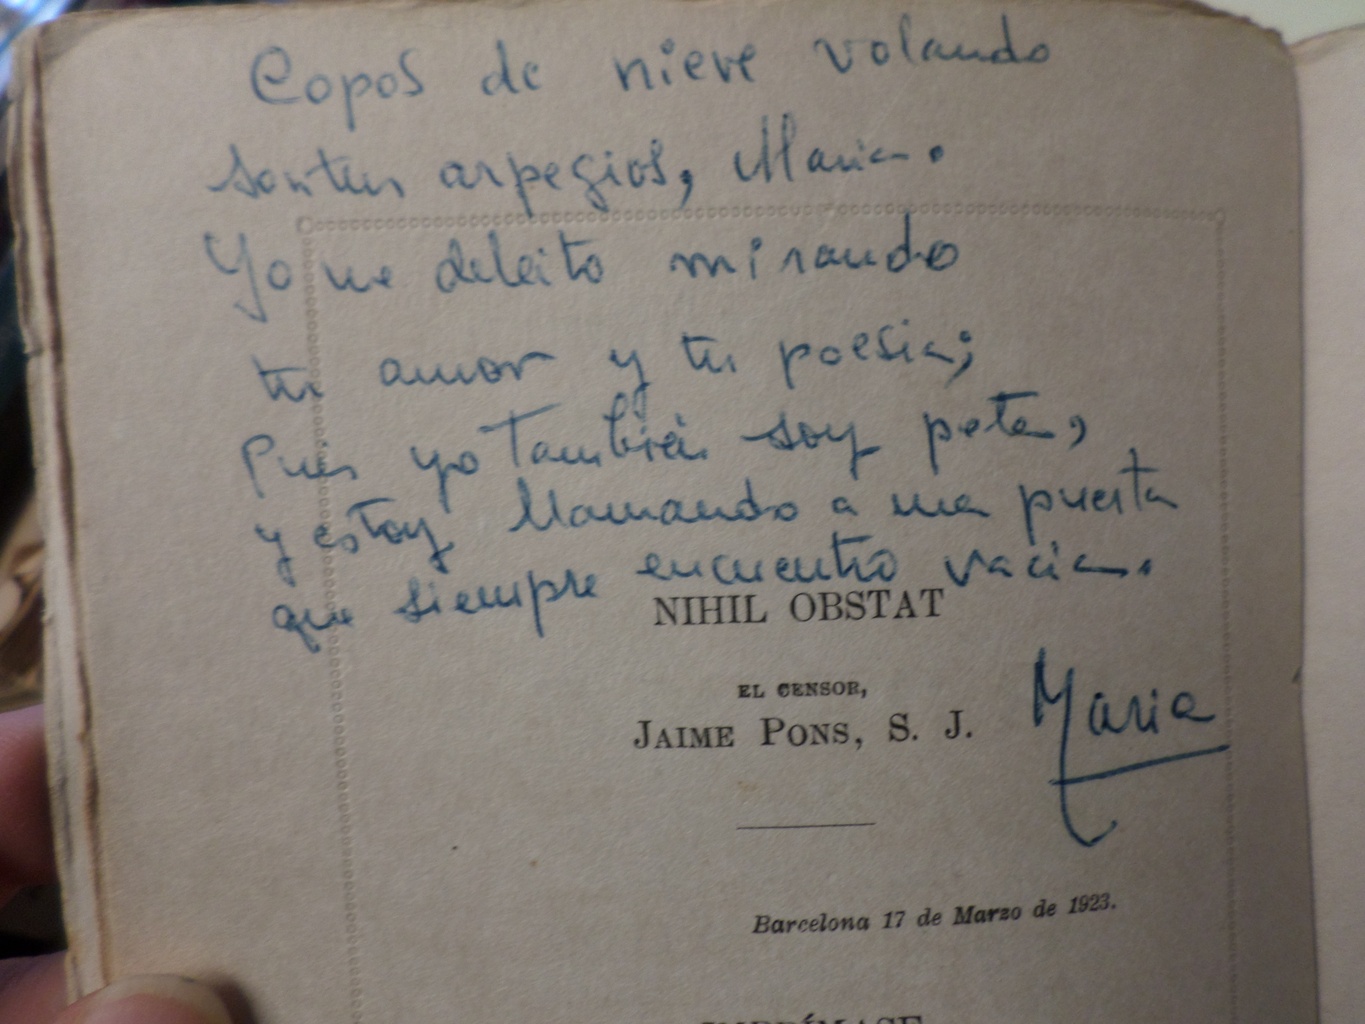 Copos de nieve volando
son tus arpegios, Maria.
Yo me deleito mirando
tu amor y tu poesia;
Pues yo Tambien soy peta,
y estoy llamando a una puerta
que siempre encuentro vacia.
NIHIL OBSTAT
EL CENSOR,
JAIME PONS, S. J.
Maria
Barcelona 17 de Marzo de 1923.